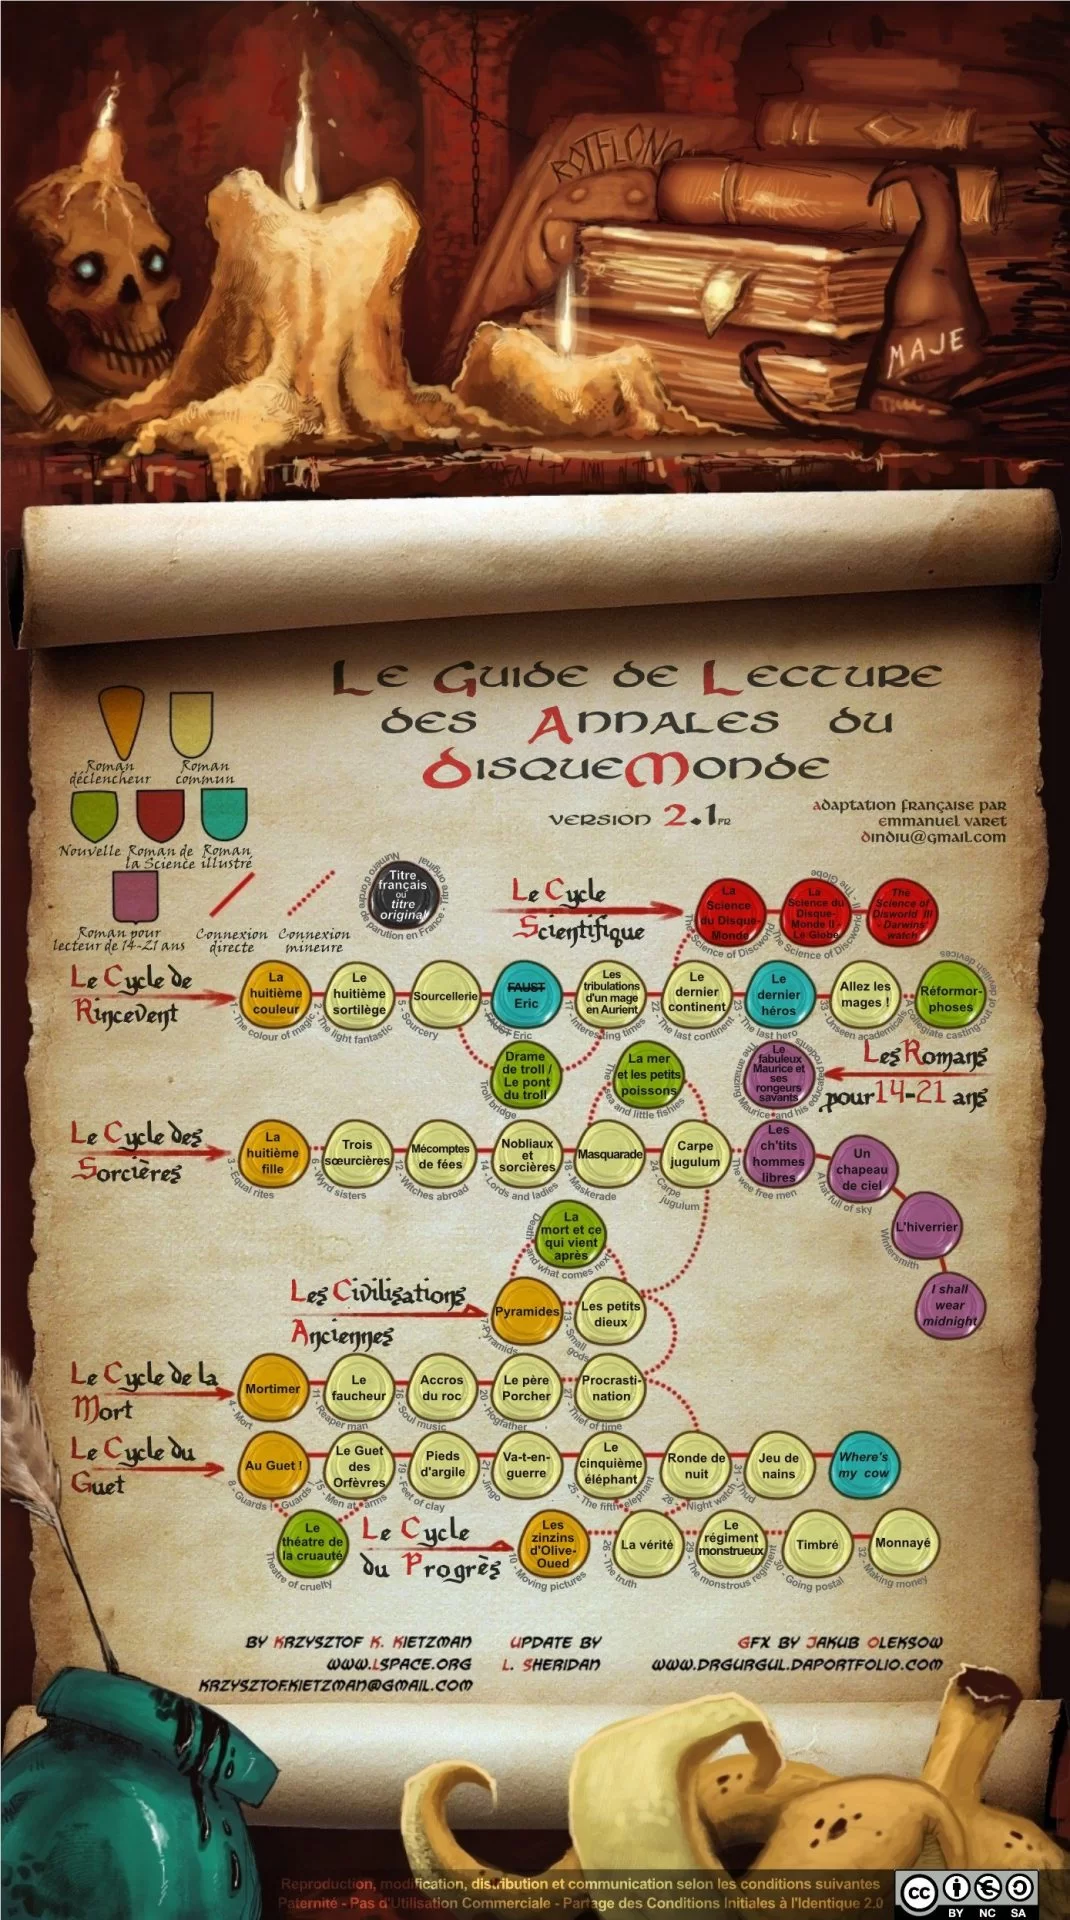 ROTFLONG
MAJE
Le Guide de Lecture
des Annales du
DisqueMonde
version 2.1FR
adaptation française par
emmanuel varet
dindiu@gmail.com
Roman
déclencheur
Roman
commun
Nouvelle
Roman de
la Science
Roman
illustré
Roman pour
lecteur de 14-21 ans
Connexion
directe
Connexion
mineure
Titre
français
ou
titre
original
Numéro d'ordre de parution en France - Titre original
Le Cycle
Scientifique
La
Science
du Disque-
Monde
The Science of Discworld
La
Science du
Disque-
Monde II -
Le Globe
The Science of Discworld II - The Globe
The
Science of
Disworld III
- Darwins
watch
Le Cycle de
Rincevent
La
huitième
couleur
1 - The colour of magic
Le
huitième
sortilège
2 - The light fantastic
Sourcellerie
5 - Sourcery
FAUST
Eric
9 - FAUST Eric
Les
tribulations
d'un mage
en Aurient
17 - Interesting times
Le
dernier
continent
22 - The last continent
Le
dernier
héros
23 - The last hero
Allez les
mages !
33 - Unseen academicals
Réformor-
phoses
A collegiate casting-out of devilish devices
Drame
de troll /
Le pont
du troll
Troll bridge
La mer
et les petits
poissons
The sea and little fishies
Le
fabuleux
Maurice et
ses
rongeurs
savants
The amazing Maurice and his educated rodents
Les Romans
pour 14-21 ans
Le Cycle des
Sorcières
La
huitième
fille
3 - Equal rites
Trois
sœurcières
6 - Wyrd sisters
Mécomptes
de fées
12 - Witches abroad
Nobliaux
et
sorcières
14 - Lords and ladies
Masquarade
18 - Maskerade
Carpe
jugulum
24 - Carpe
jugulum
Les
ch'tits
hommes
libres
The wee free men
Un
chapeau
de ciel
A hat full of sky
L'hiverrier
Wintersmith
I shall
wear
midnight
La
mort et ce
qui vient
après
Death and what comes next
Les Civilisations
Anciennes
Pyramides
7-Pyramids
Les petits
dieux
13 - Small
gods
Le Cycle de la
Mort
Mortimer
4 - Mort
Le
faucheur
11 - Reaper man
Accros
du roc
16 - Soul music
Le père
Porcher
20 - Hogfather
Procrasti-
nation
27 - Thief of time
Le Cycle du
Guet
Au Guet !
8 - Guards ! Guards !
Le Guet
des
Orfèvres
15 - Men at arms
Pieds
d'argile
19 - Feet of clay
Va-t-en-
guerre
21 - Jingo
Le
cinquième
éléphant
25 - The fifth elephant
Ronde de
nuit
28 - Night watch
Jeu de
nains
31 - Thud
Where's
my cow
Le
théatre de
la cruauté
Theatre of cruelty
Le Cycle
du Progrès
Les
zinzins
d'Olive-
Oued
10 - Moving pictures
La vérité
26 - The truth
Le
régiment
monstrueux
29 - The monstrous regiment
Timbré
30 - Going postal
Monnayé
32 - Making money
by Krzysztof K. Kietzman
www.lspace.org
krzysztof.kietzman@gmail.com
update by
L. Sheridan
GFX by Jakub Oleksow
www.drgurgul.daportfolio.com
Reproduction, modification, distribution et communication selon les conditions suivantes
Paternité - Pas d'Utilisation Commerciale - Partage des Conditions Initiales à l'Identique 2.0
cc
BY NC SA